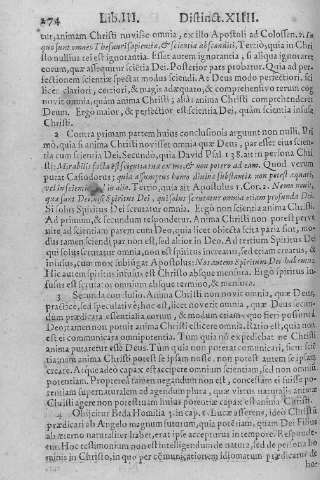 274 Lib. III. Distinct. XIIII.
tur, animam Christi novisse omnia, ex illo Apostoli ad Colossen. 2. In
quo sunt omnes Thesauri sapientiæ, & scientiæ absconditi. Tertio, quia in Chri
sto nullius rei est ignorantia. Esset autem ignorantia, si aliqua ignoraret
eorum, quæ assequitur scientia Dei. Posterior pars probatur. Quia ad per-
fectionem scientiæ spectat modus sciendi. At Deus modo perfectiori, sci
licet clariori, certiori, & magis adæquato, & comprehensivo rerum cog
novit omnia, quàm anima Christi; aliàs anima Christi comprehenderet
Deum. Ergo maior, & perfectior est scientia Dei, quàm scientia infusa
Christi.
2 Contra primam partem huius conclusionis arguunt non nulli. Pri
mò, quia si anima Christi novisset omnia quæ Deus, par esset eius scien-
tia cum scientia Dei. Secundò, quia David Psal. 138. ait in persona Chri
sti: Mirabilis facta est scientia tua ex me, & non potero ad eam. Quod verum
putat Casiodorus; quia assumptus homo divinæ substantiæ non potest æquari,
vel in scientia, vel in alio. Tertio, quia ait Apostolus 1. Cor. 2. Nemo novit,
quæ sunt Dei, nisi Spiritus Dei, qui solus scrutatur omnia etiam profunda Dei.
Si solus Spiritus Dei scrutatur omnia. Ergo non scientia anima Christi.
Ad primum, & secundum respondetur. Anima Christi non potest perve
nire ad scientiam parem cum Deo, quia licet obiecta scita paria sint, mo-
dus tamen sciendi par non est, sed altior in Deo. Ad tertium Spiritus Dei
qui solus scrutatur omnia, non est spiritus increatus, sed etiam creatus, &
infusus, cum mox subijungat Apostolus: Nos autem Spiritum Dei habemus.
Hic autem spiritus infusus est Christo absque mensura. Ergo spiritus in-
fusus est scrutator omnium absque termino, & mensura.
3 Secunda conclusio. Anima Christi non novit omnia, quæ Deus
practicè, sed speculativè: hoc est, licet noverit omnia, quæ Deus secun-
dum prædicata essentialia eorum, & modum etiam, quo fieri possunt à
Deo, tamen non potuit anima Christi efficere omnia. Ratio est, quia non
est ei communicata omnipotentia. Tum quia nō expediebat ne Christi
anima putaretur esse Deus. Tum quia non poterat comunicari, sicut sci-
tiagnum anima Christi potest se ipsam nosse. non potest autem se ipsam
creare. Atque adeò capax est accipere omnium scientiam, sed non omniū
potentiam. Propterea tamen negandum non est, concessam ei fuisse po-
tentiam supernaturalem ad agendum plura, quæ virtus naturalis animæ
Christi agere non potest tum huius potentiæ capax est anima Christi.
4 Obijcitur Beda Homilia 3. in cap. 1. Lucæ asserens, ideò Christū
prædicari ab Angelo magnum futurum, quia potētiam, quam Dei Filius
ab æterno naturaliter habet, erat ipse accepturus in tempore. Respondē-
tur. Hoc testimonium non est intelligendum de natura, sed de persona ho
minis in Christo, in quo per cōmunicationem Idiomatum prædicatur de
hoc